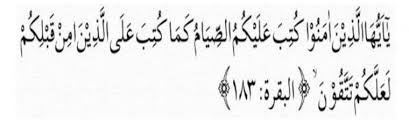 يٰٓاَيُّهَا الَّذِيْنَ اٰمَنُوْا كُتِبَ عَلَيْكُمُ الصِّيَامُ كَمَا كُتِبَ عَلَى الَّذِيْنَ مِنْ قَبْلِكُمْ
لَعَلَّكُمْ تَتَّقُوْنَۙ ﴿البقرة: ١٨٣﴾